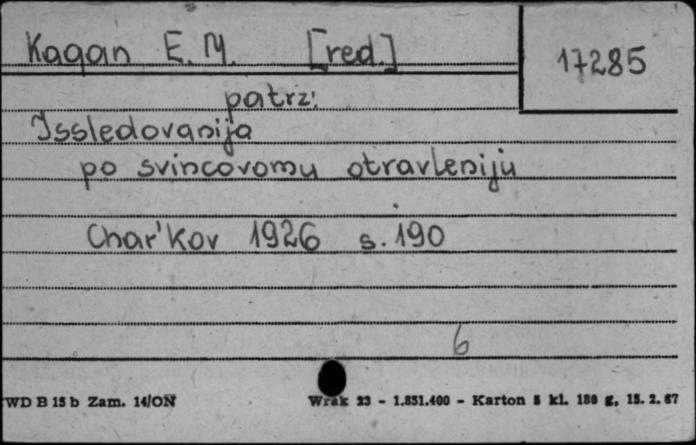 Kagan E. M. [red.]
17285
patrz:
Issledovanija
po svincovomu otravleniju
Char'kov 1926 s. 190
6
WD B 15 b Zam. 14/ON Wrak 23 - 1.851.400 - Karton 5 kl. 180 g, 15. 2. 67